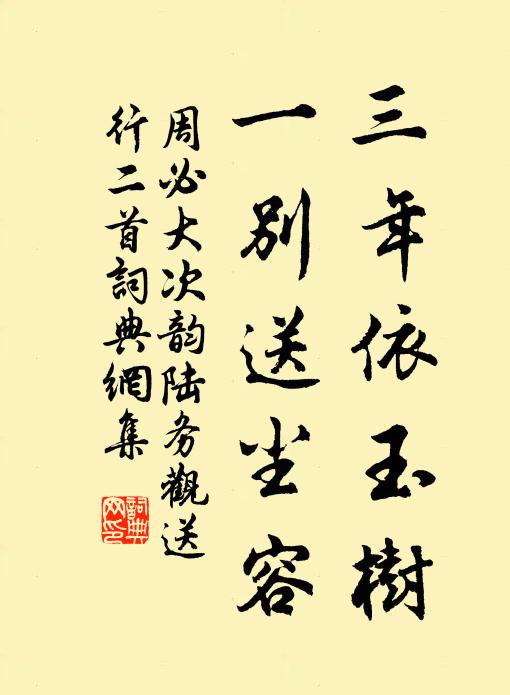 三年依玉樹
一别送尘容
周必大次韵陆务觀送
行二首詞典網集
詞典
网印